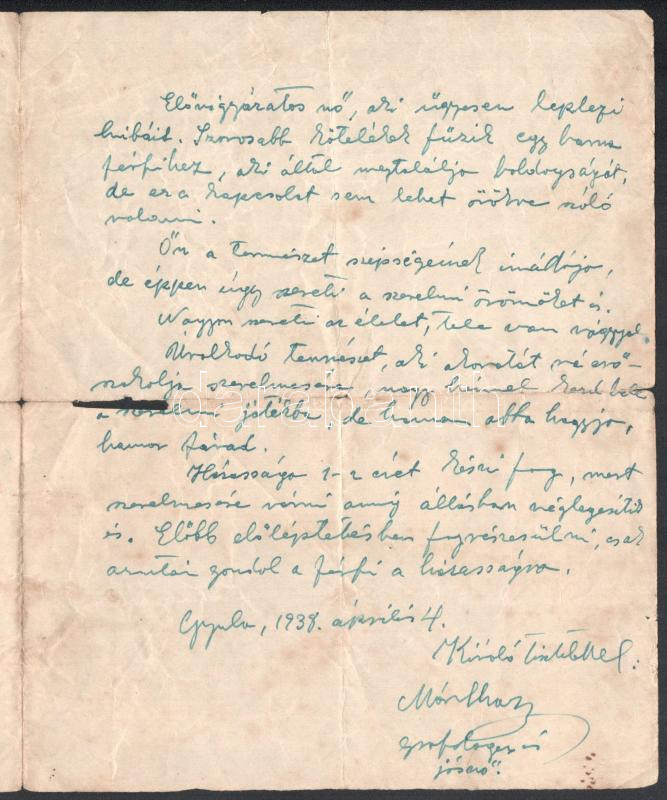 Elővigyázatos nő, aki ügyesen leplezi
hibáit. Szorosabb kötelékek fűzik egy barna
férfihez, aki által megtalálja boldogságát,
de ez a kapcsolat sem lehet örökre szóló
valami.
Ön a természet szépségeinek imádója,
de éppen úgy szereti a szerelmi örömöket is.
Nagyon szereti az életet, tele van vággyal.
Uralkodó természet, aki akaratát rá erő-
szakolja szerelmesére, nagy hévvel kezd bele
a szerelmi játékba, de hamar abba hagyja,
hamar fárad.
Házassága 1-2 évet késni fog, mert
szerelmesére várni amíg állásban véglegesítik
is. Előbb előléptetésben fog részesülni, csak
azután gondol a férfi a házasságra.
Gyula, 1938. április 4.
Kiváló tisztelettel:
grafologus és
jósnő.
darabanth